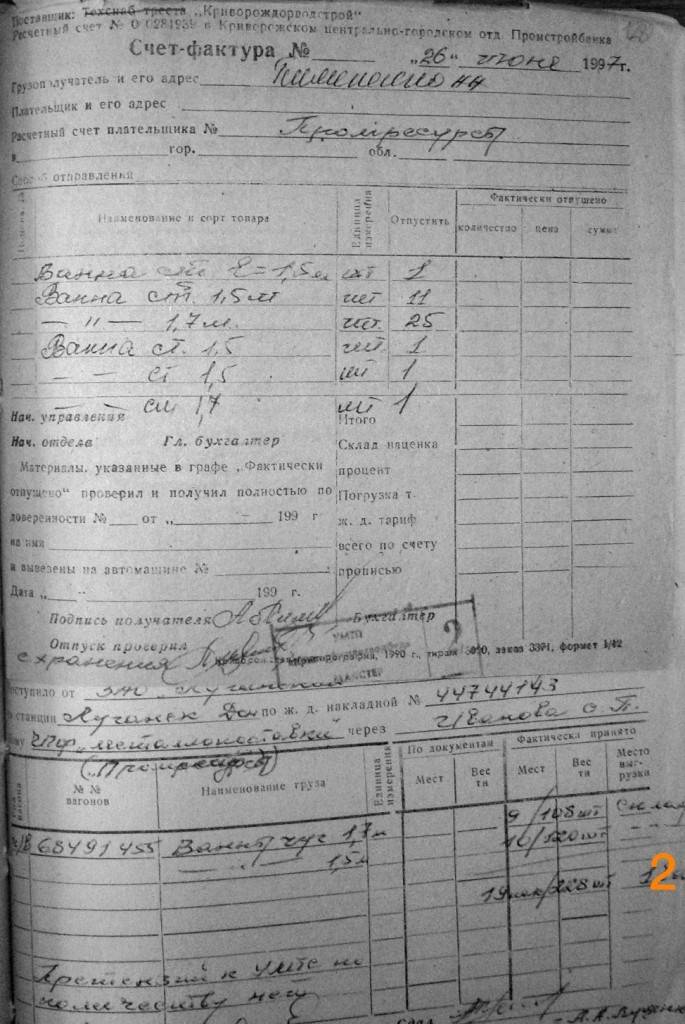 Поставщик: Техснаб треста „Криворождорводстрой"
Расчетный счет № в Криворожском центрально-городском отд. Промстройбанка
Счет-фактура № „26" июня 1997г.
Грузополучатель и его адрес
Плательщик и его адрес
Расчетный счет плательщика № Промресурсы
в гор. обл.
Способ отправления
Наименование и сорт товара Единица измерения Отпустить Фактически отпущено
количество цена сумма
Ванна ст. 1,5м шт 1
Ванна ст. 1,5м шт 11
— " — 1,7м. шт. 25
Ванна ст. 1,5 шт. 1
— — ст 1,5 шт 1
— — 1,7 шт 1
Нач. управления Итого
Нач. отдела Гл. бухгалтер Склад наценка
Материалы, указанные в графе „Фактически процент
отпущено" проверил и получил полностью по Погрузка т.
доверенности № от „ — 199 г ж. д. тариф
на имя всего по счету
и вывезены на автомашине № прописью
Дата „ " 199 г.
Подпись получателя Бухгалтер
Отпуск проверил
хранения типография, 1990 г., тираж заказ формат 1/42
УМТС
МАСТЕР
2
Поступило от ЗАО
станции Луганск Дон по ж. д. накладной № 44744143
ЧПФ „Металлопоставки" через Иванова С. П.
(Промресурсы)
№ № вагонов Наименование груза Единица измерения По документам Фактически принято Место выгрузки
Мест Вес тн Мест Вес тн
68491455 Ванны чуг 1,7м 9/108шт Склад
— " — 1,5м 10/120шт — " —
19 228шт
2
Претензий к УМТС по
количеству нет